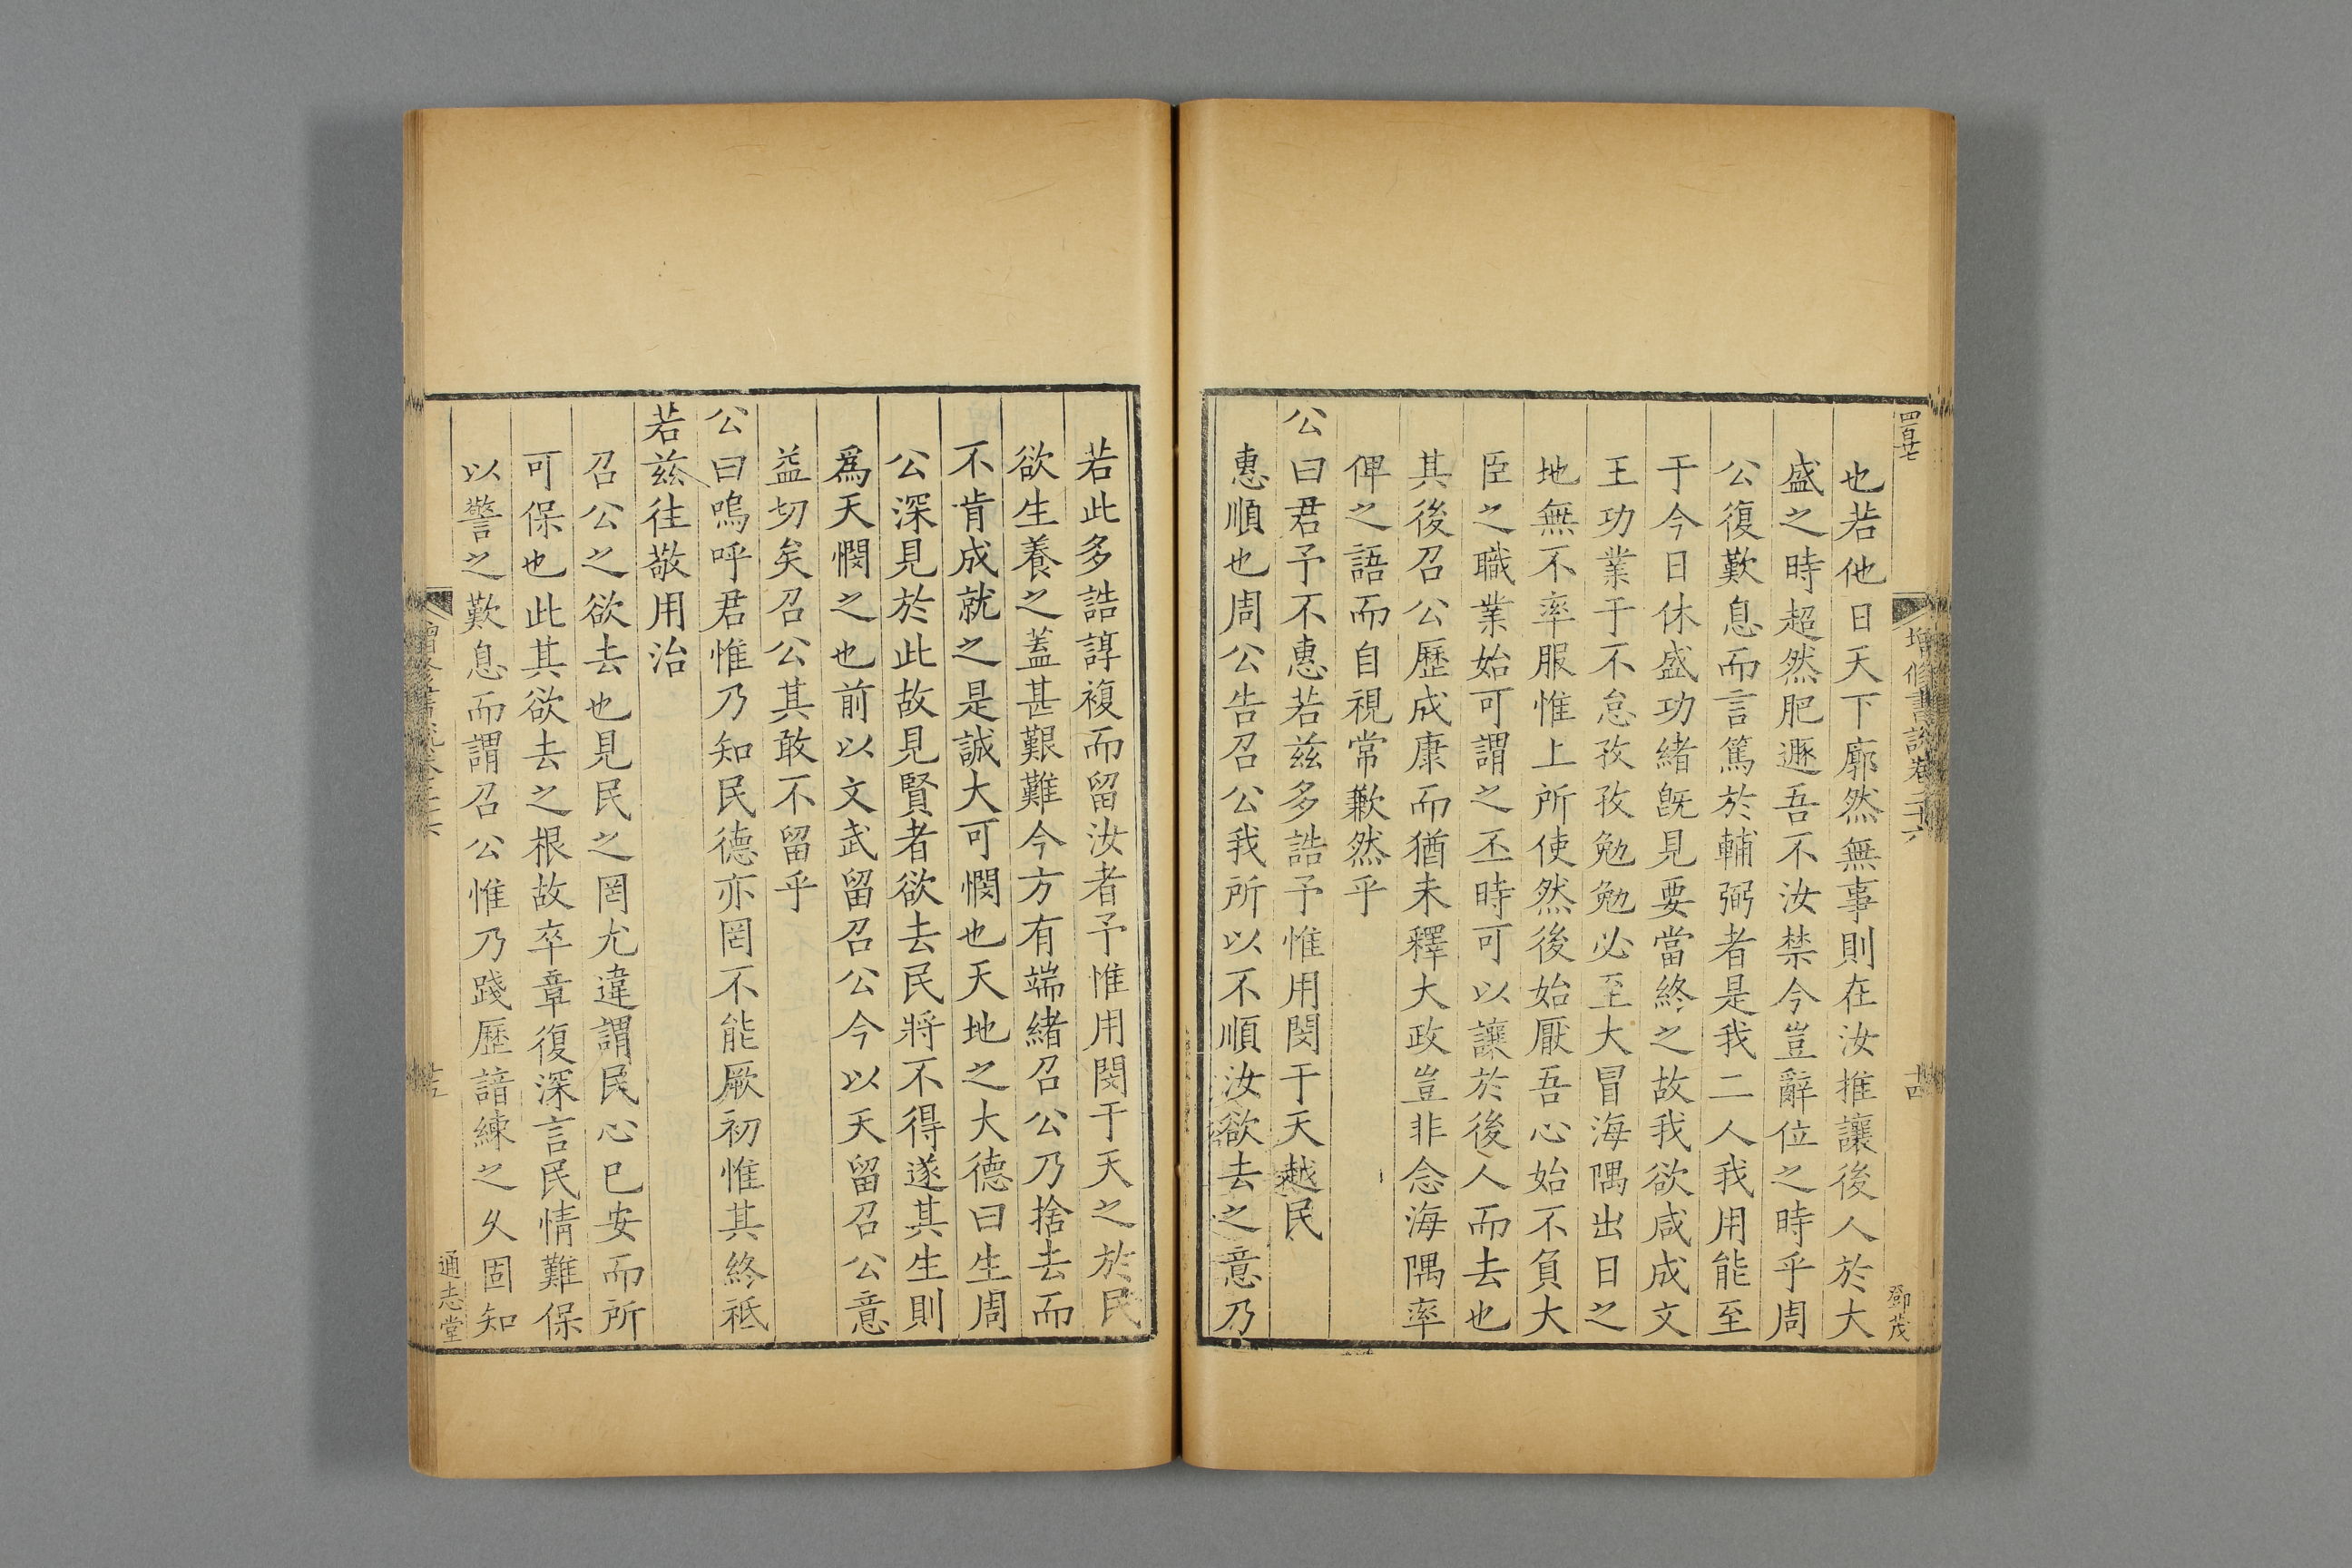 增修書說卷二十六
十四
鄧茂
也若他日天下廓然無事則在汝推讓後人於大
盛之時超然肥遯吾不汝禁今豈辭位之時乎周
公復歎息而言篤於輔弼者是我二人我用能至
于今日休盛功緒旣見要當終之故我欲咸成文
王功業于不怠孜孜勉勉必至大冒海隅出日之
地無不率服惟上所使然後始厭吾心始不負大
臣之職業始可謂之丕時可以讓於後人而去也
其後召公歷成康而猶未釋大政豈非念海隅率
俾之語而自視常歉然乎
公曰君予不惠若茲多誥予惟用閔于天越民
惠順也周公告召公我所以不順汝欲去之意乃
若此多誥諄複而留汝者予惟用閔于天之於民
欲生養之蓋甚艱難今方有端緒召公乃捨去而
不肯成就之是誠大可憫也天地之大德曰生周
公深見於此故見賢者欲去民將不得遂其生則
爲天憫之也前以文武留召公今以天留召公意
益切矣召公其敢不留乎
公曰嗚呼君惟乃知民德亦罔不能厥初惟其終祗
若茲往敬用治
召公之欲去也見民之罔尤違謂民心已安而所
可保也此其欲去之根故卒章復深言民情難保
以警之歎息而謂召公惟乃踐歷諳練之久固知
通志堂